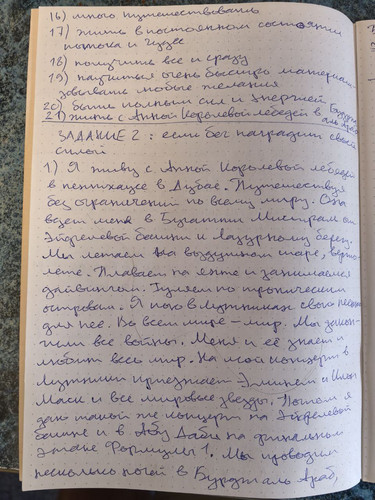 16) много путешествовать
17) жить в постоянном состоянии
потока и чудес
18) получить все и сразу
19) научиться очень быстро материали-
зовывать любые желания
20) быть полным сил и энергией
21) жить с Анной Королевой лебедей в Бурдж
аль Араб
ЗАДАНИЕ 2: если бог наградил своей
силой
1) Я живу с Анной Королевой лебедей
в пентхаусе в Дубае. Путешествуя
без ограничений по всему миру. Она
везет меня в Бугатти Мистраль от
Эйфелевой башни к Лазурному берегу.
Мы летаем на воздушном шаре, верто-
лете. Плаваем на яхте и занимаемся
дайвингом. Гуляем по тропическим
островам. Я пою в Лужниках свою песню
для нее. Во всем мире – мир. Мы закон-
чили все войны. Меня и её знает и
любит весь мир. На мой концерт в
Лужники приезжает Эминем и Илон
Маск и все мировые звезды. Потом я
даю такой же концерт на Эйфелевой
башне и в Абу Даби на финальном
этапе Формулы 1. Мы проводим
несколько ночей в Бурдж аль Араб,